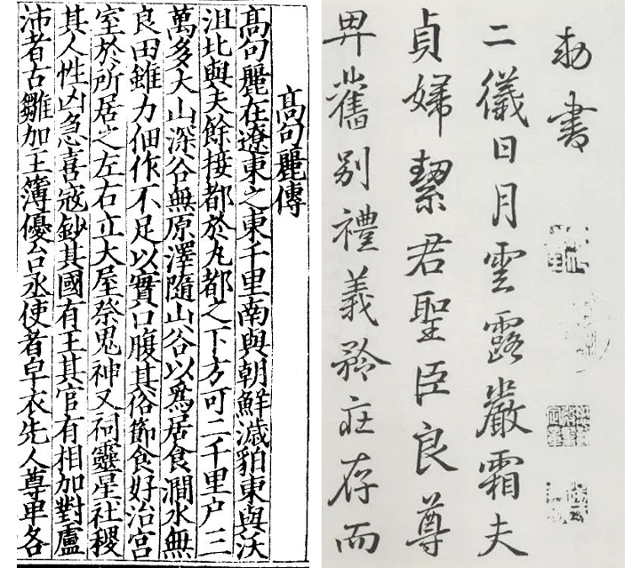 髙句麗傳
髙句麗在遼東之東千里南與朝鮮濊貊東與沃
沮北與夫餘接都於丸都之下方可二千里户三
萬多大山深谷無原澤隨山谷以爲居食澗水無
良田雖力佃作不足以實口腹其俗節食好治宮
室於所居之左右立大屋祭鬼神又祠靈星社稷
其人性凶急喜寇鈔其國有王其官有相加對盧
沛者古雛加王簿優台丞使者皁衣先人尊卑各
勅書
二儀日月雲露嚴霜夫
貞婦絜君聖臣良尊
卑舊别禮義矜莊存而